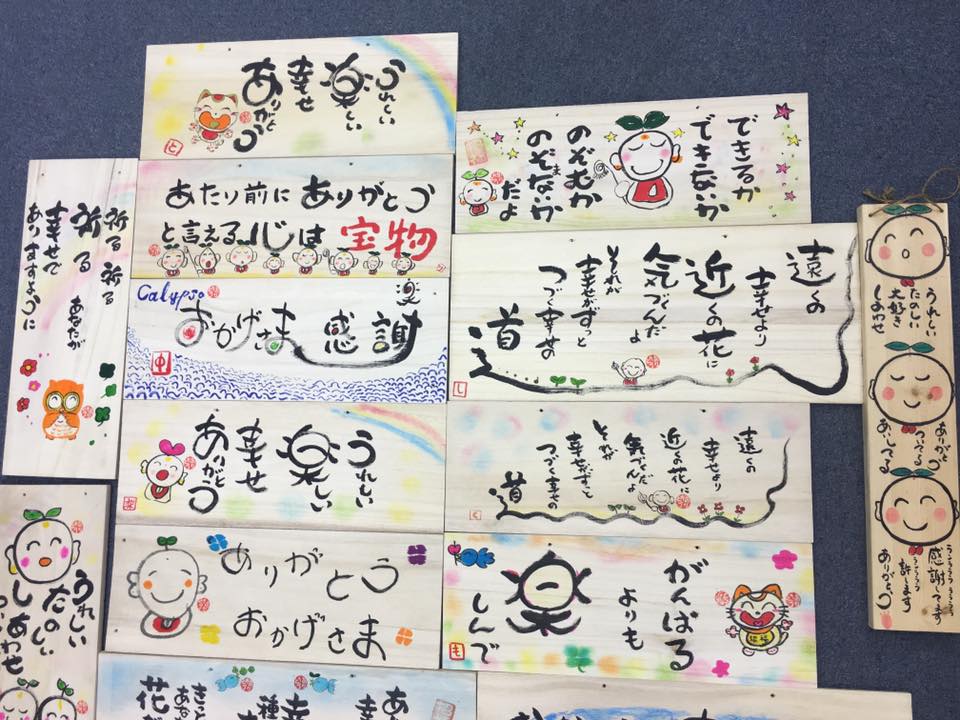 うれしい
楽しい
幸せ
ありがとう
と
できるか
できないか
のぞむか
のぞまないか
だよ
あたり前にありがとう
と言える心は宝物
祈る祈る
祈る
あなたが
幸せで
ありますように
Calypso
楽
おかげさま
感謝
中
遠くの
幸せより
近くの花に
気づんだ
よ
それが
幸せがずっと
つづく幸せの
道
し
うれしい
楽しい
幸せ
ありがとう
遠くの
幸せより
近くの花に
気づんだよ
それが
幸せがずっと
つづく幸せの
道
く
ありがとう
おかげさま
がんばる
よりも
楽
しんで
も
うれしい
たのしい
大好き
しあわせ
ありがとう
ついてる
あいしてる
感謝してます
許します
ありがとう
うれしい
たのしい
しあわせ